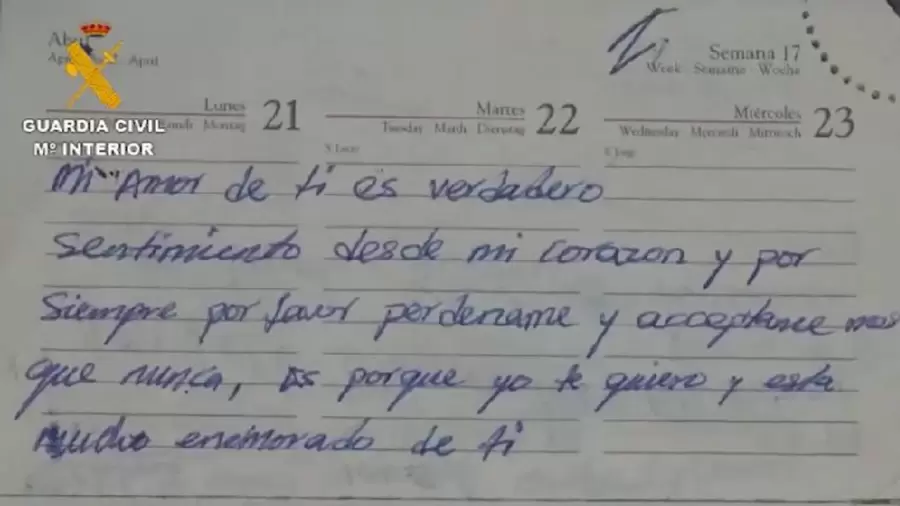 Abril
April
Semana 17
Week Semaine Woche
Lunes 21
Martes 22
Miércoles 23
Montag
Tuesday Mardi Dienstag
Wednesday Mercredi Mittwoch
GUARDIA CIVIL
Mº INTERIOR
Mi Amor de ti es verdadero
sentimiento desde mi corazon y por
siempre por favor perdename y acceptame mas
que nunca, es porque yo te quiero y esta
mucho enamorado de ti